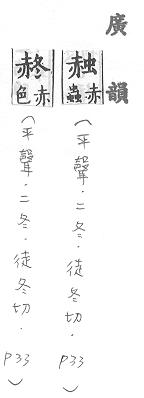 廣韻
赨赤蟲(平聲.二冬.徒冬切.P33)
赤色(平聲.二冬.徒冬切.P33)